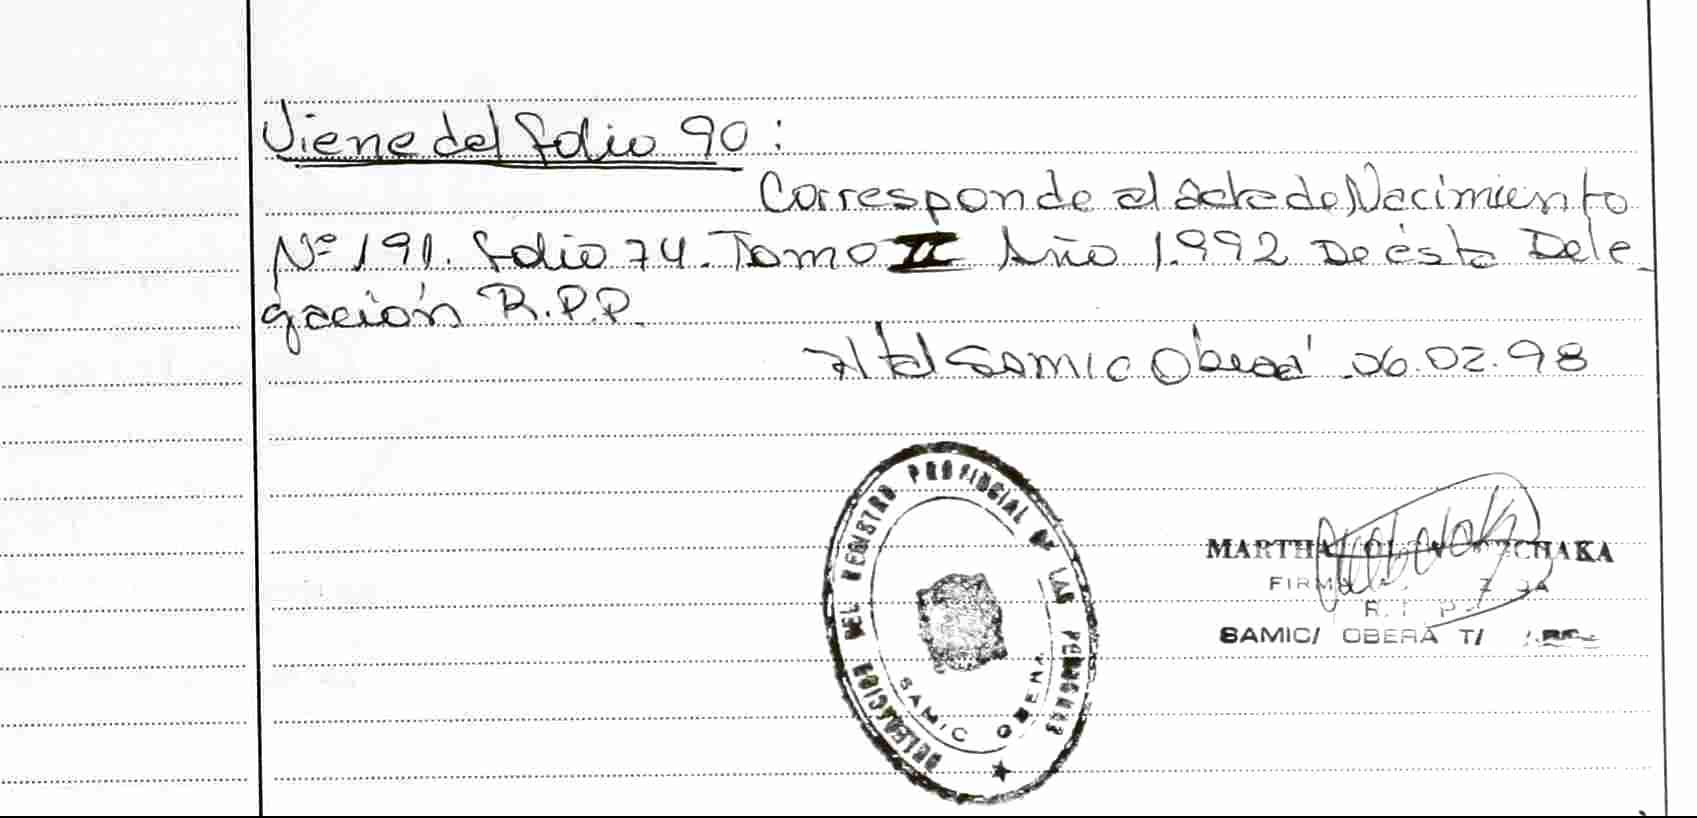 Viene del folio 90:
Corresponde al acta de Nacimiento
Nº 191. folio 74. Tomo II Año 1.992 De ésta Dele-
gación R.P.P.
Samic Oberá 06.02.98
DELEGACION DEL REGISTRO PROVINCIAL DE LAS PERSONAS
SAMIC OBERA
MARTHA
SAMIC/ OBERA T/